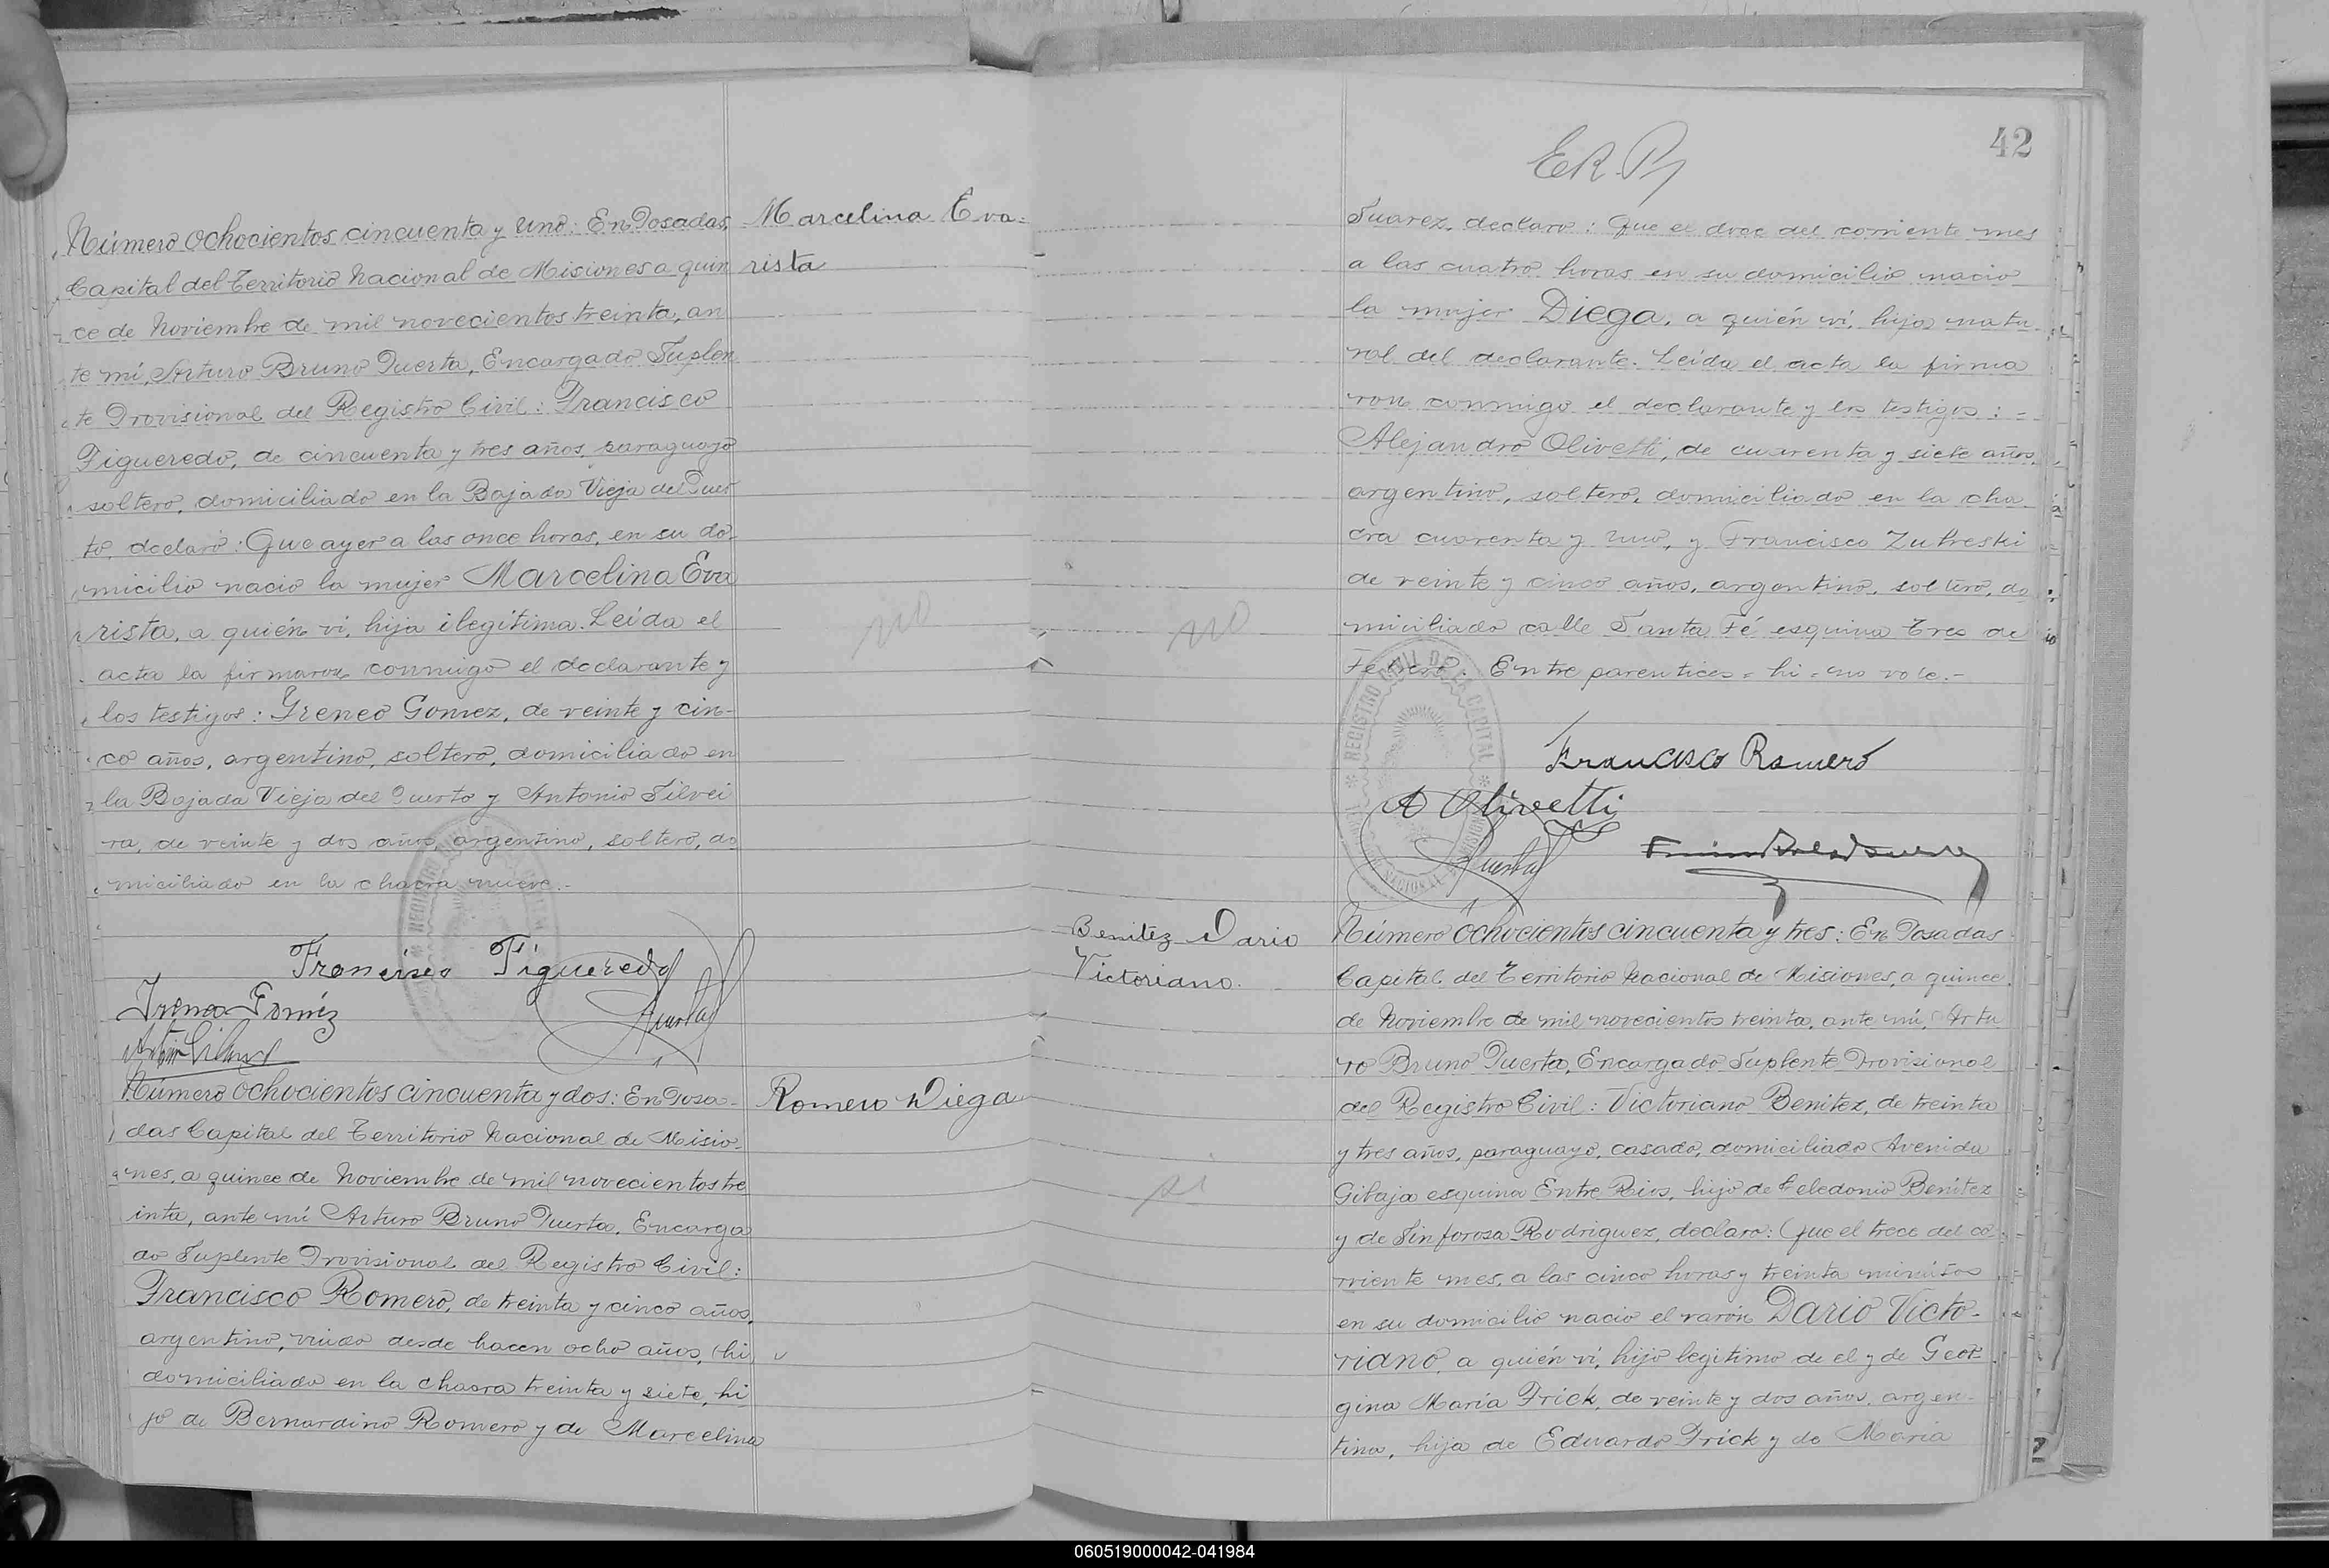 Número ochocientos cincuenta y uno: En Posadas,
Capital del Territorio Nacional de Misiones a quin
ce de Noviembre de mil novecientos treinta, an
te mí, Arturo Bruno Puerta, Encargado Suplen
te Provisional del Registro Civil: Francisco
Figueredo, de cincuenta y tres años, paraguayo
soltero, domiciliado en la Bajada Vieja del Puer
to, declaró: Que ayer a las once horas, en su do
micilio nació la mujer Marcelina Eva
rista, a quién ví, hija ilegítima. Leída el
acta la firmaron conmigo el declarante y
los testigos: Yreneo Gomez, de veinte y cin-
co años, argentino, soltero, domiciliado en
la Bajada Vieja del Puerto y Antonio Silvei
ra, de veinte y dos años, argentino, soltero, do
miciliado en la chacra nueve.-
Marcelina Eva=
rista
no
Francisco Figueredo
Ireneo Goméz
Puerta
Número ochocientos cincuenta y dos: En Posa-
das Capital del Territorio Nacional de Misio-
nes, a quince de Noviembre de mil novecientos tre
inta, ante mí Arturo Bruno Puerta, Encarga
do Suplente Provisional del Registro Civil:
Francisco Romero, de treinta y cinco años,
argentino, viudo desde hacen ocho años, (hi)
domiciliado en la chacra treinta y siete, hi
jo de Bernardino Romero y de Marcelina
Romero Diega
42
Suarez, declaro: Que el doce del corriente mes
a las cuatro horas en su domicilio nacio
la mujer Diega, a quién ví, hija natu-
ral del declarante. Leída el acta la firma
ron conmigo el declarante y los testigos: =
Alejandro Olivetti, de cuarenta y siete años,
argentino, soltero, domiciliado en la cha
cra cuarenta y uno, y Francisco Zutreski
de veinte y cinco años, argentino, soltero, do
miciliado calle Santa Fé esquina Tres de
Febrero. Entre parentices = hi = no vale.-
no
REGISTRO CIVIL DE LA CAPITAL
Francisco Romero
A Olivetti
Puerta
Benitez Dario
Victoriano.
si
Número ochocientos cincuenta y tres: En Posadas
Capital del Territorio Nacional de Misiones, a quince
de Noviembre de mil novecientos treinta, ante mí, Artu
ro Bruno Puerta, Encargado Suplente Provisional
del Registro Civil: Victoriano Benitez, de treinta
y tres años, paraguayo, casado, domiciliado Avenida
Gibaja esquina Entre Rios, hijo de Celedonio Benitez
y de Sinforosa Rodriguez, declaro: Que el trece del co
rriente mes, a las cinco horas y treinta minutos
en su domicilio nacio el varón Dario Victo-
riano, a quién ví, hijo legitimo de el y de Geor
gina María Frick, de veinte y dos años, argen-
tina, hija de Eduardo Frick y de María
060519000042-041984